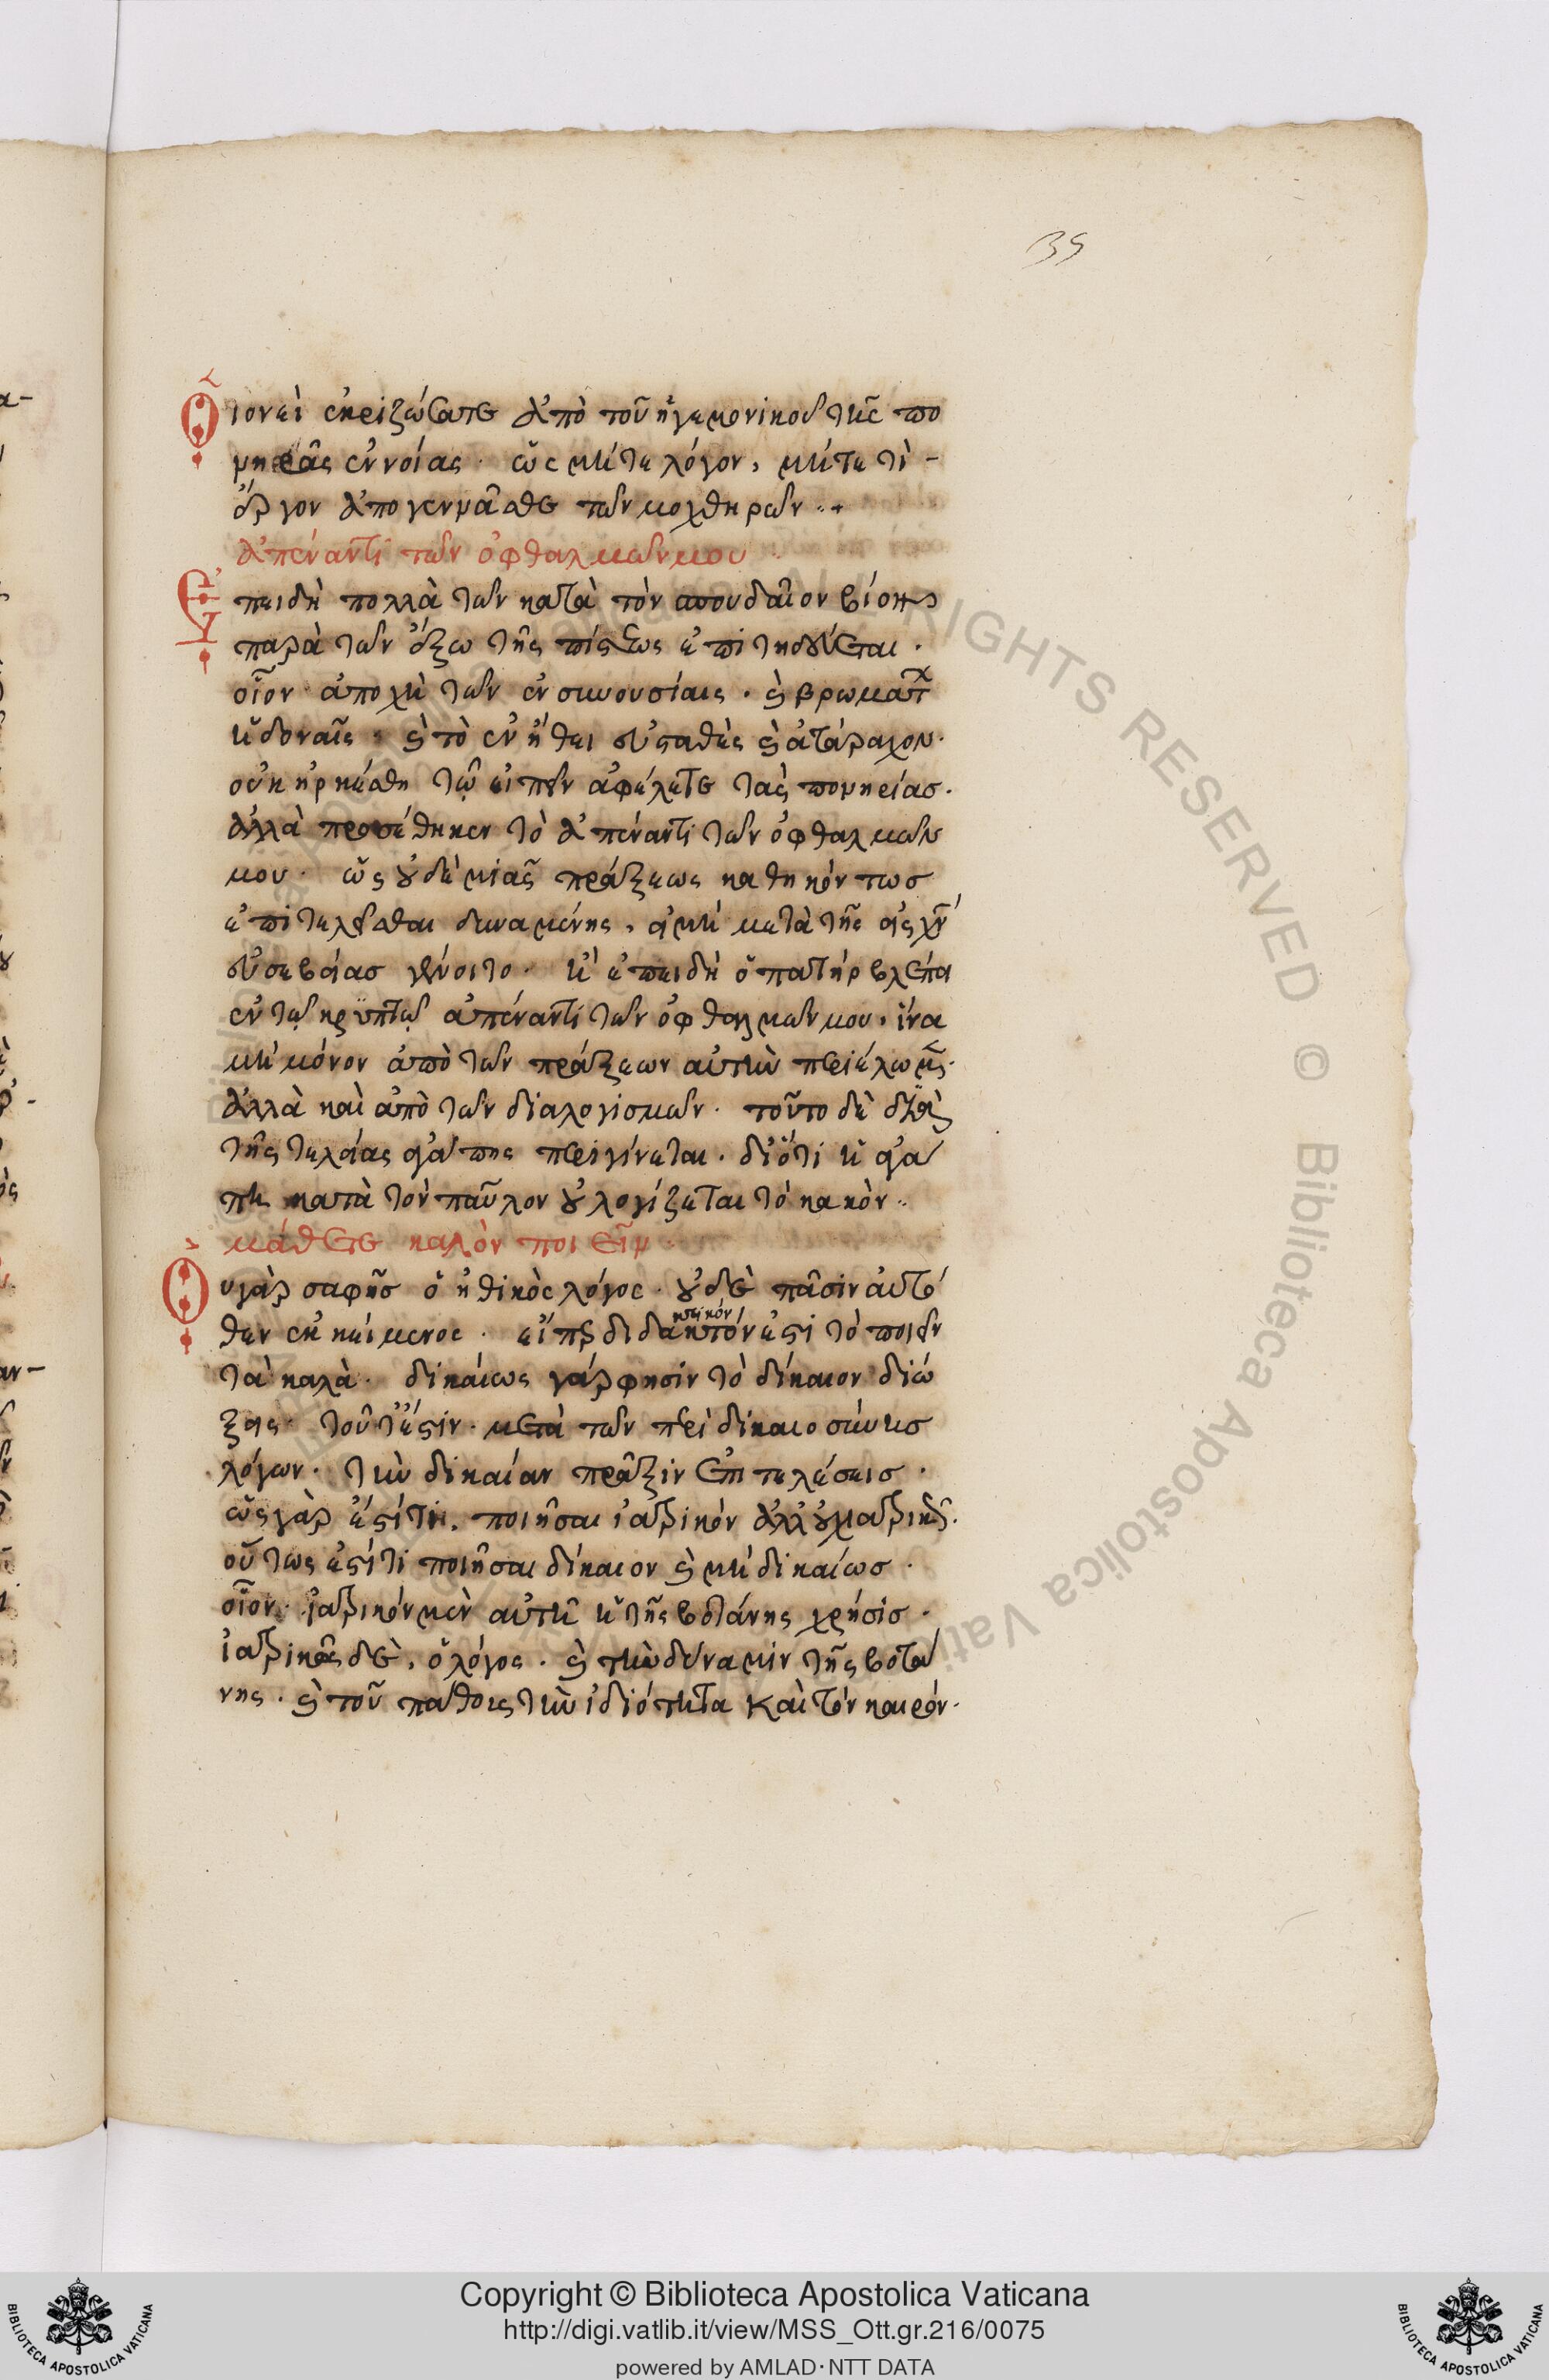 35
Οἱονεὶ ἐκριζώσατε ἀπὸ τοῦ ἡγεμονικοῦ τῆς πο
νηρᾶς ἐννοίας. ὡς μήτε λόγον, μήτε τὶ -
ἔργον ἀπογεννᾶσθε τῶν μοχθηρῶν..+
ἀπέναντι τῶν ὀφθαλμῶν μου
Ἐπειδὴ πολλὰ τῶν κατὰ τὸν σπουδαῖον βίον καὶ
παρὰ τῶν ἔξω τῆς πίστεως ἐπιτηδεύεται.
οἷον ἀποχὴ τῶν ἐν συνουσίαις. καὶ βρωμάτων
ἡδοναῖς. καὶ τὸ ἐν ἤθει εὐσταθὲς καὶ ἀτάραχον.
οὐκ ἠρκέσθη τῷ εἰπεῖν ἀφέλετε τὰς πονηρίας.
ἀλλὰ προσέθηκεν τὸ ἀπέναντι τῶν ὀφθαλμῶν
μου. ὡς οὐδὲ μιᾶς πράξεως καθηκόντως
ἐπιτελεῖσθαι δυναμένης, εἰ μὴ μετὰ τῆς εἰς χν
εὐσεβείας γένοιτο. ἢ ἐπειδὴ ὁ πατὴρ βλέπει
ἐν τῷ κρυπτῷ ἀπέναντι τῶν ὀφθαλμῶν μου. ἵνα
μὴ μόνον ἀπὸ τῶν πράξεων αὐτὴν περιέλωμεν.
ἀλλὰ καὶ ἀπὸ τῶν διαλογισμῶν. τοῦτο δὲ διὰ
τῆς τελείας ἀγάπης περιγίνεται. διότι ἡ ἀγά
πη κατὰ τὸν παῦλον οὐ λογίζεται τὸ κακόν..
μάθετε καλὸν ποιεῖν
Οὐ γὰρ σαφὴς ὁ ἠθικὸς λόγος. οὐδὲ πᾶσιν αὐτό
θεν ἐκκείμενος. εἴπερ διδακτόν ἐστι τὸ ποιεῖν
τὰ καλὰ. δικαίως γάρ φησὶν τὸ δίκαιον διώ
ξεις. τοῦτ' ἔστιν. μετὰ τῶν περὶ δικαιοσύνης
λόγων. τὴν δικαίαν πρᾶξιν ἐπιτελέσεις.
ὡς γὰρ ἔστι τι, ποιῆσαι ἰατρικόν ἀλλ' οὐκ ἰατρικῶς.
οὕτως ἔστι τι ποιῆσαι δίκαιον καὶ μὴ δικαίως.
οἷον. ἰατρικὸν μὲν αὐτὴ ἡ τῆς βοτάνης χρῆσις.
ἰατρικὸς δὲ, ὁ λόγος. καὶ τὴν δύναμιν τῆς βοτά
νης. καὶ τοῦ πάθους τὴν ἰδιότητα καὶ τὸν καιρόν.
Copyright © Biblioteca Apostolica Vaticana
http://digi.vatlib.it/view/MSS_Ott.gr.216/0075
powered by AMLAD·NTT DATA